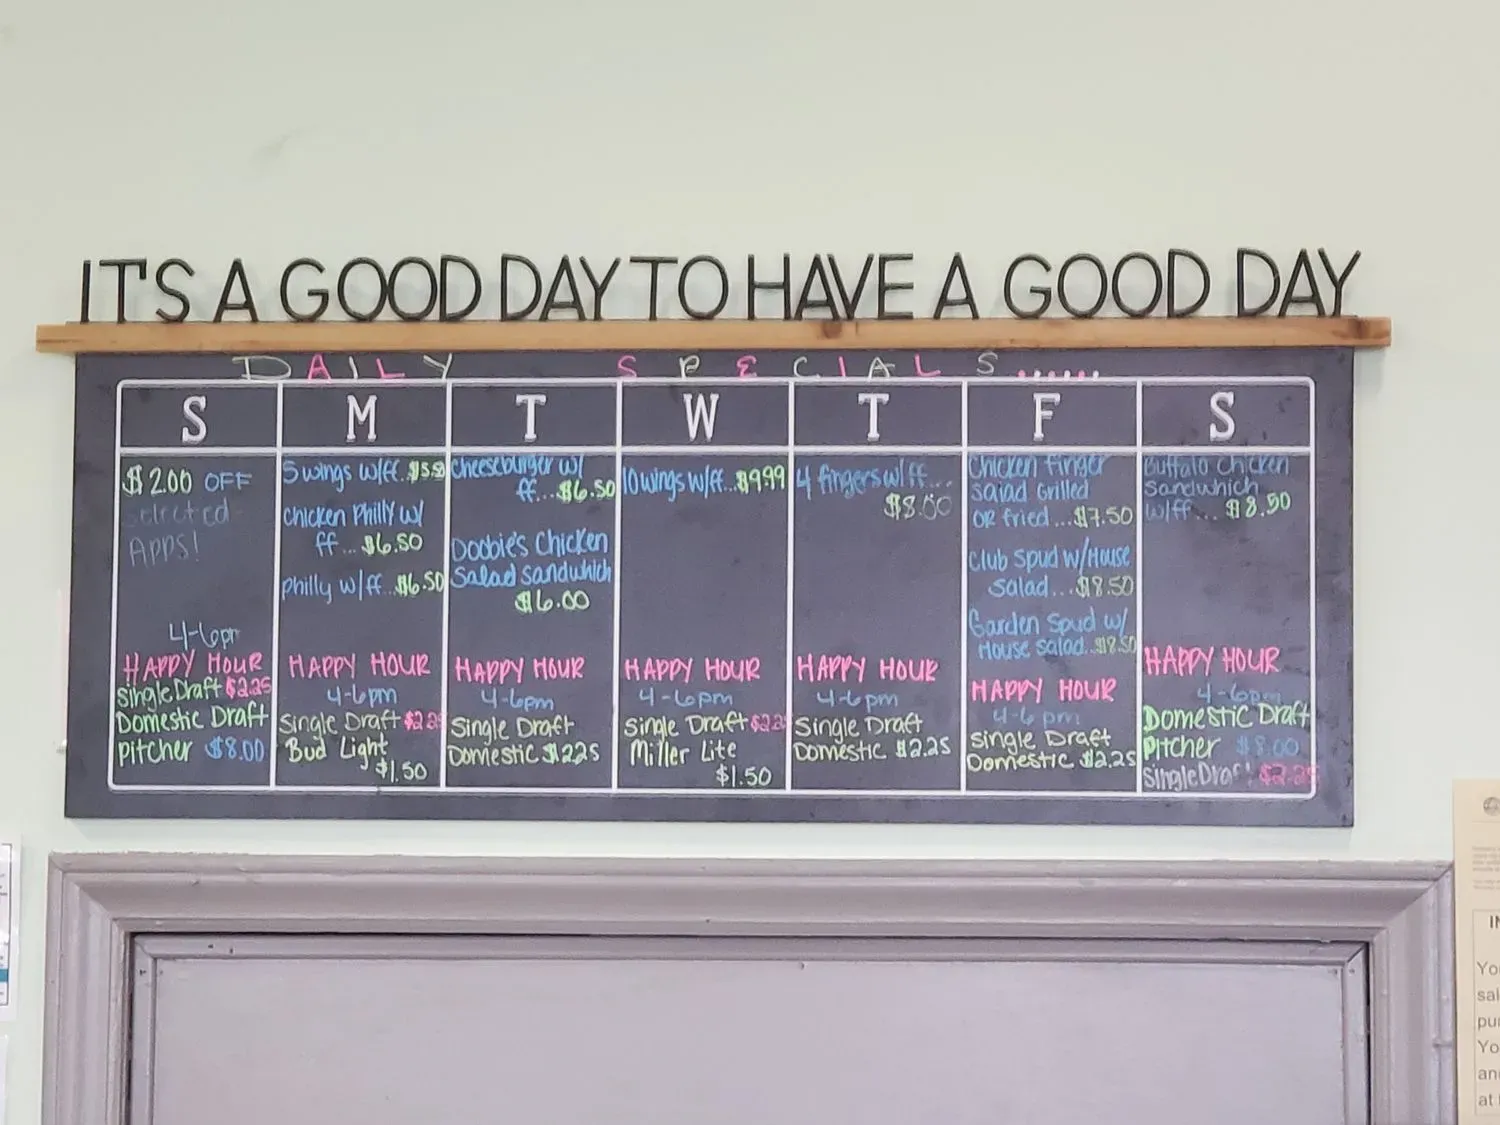 IT'S A GOOD DAY TO HAVE A GOOD DAY
DAILY SPECIALS......
S
$2.00 OFF
selected
Apps!
4-6pm
HAPPY HOUR
Single Draft $2.25
Domestic Draft
Pitcher $8.00
M
5 wings w/ff..
Chicken Philly w/
ff... $6.50
philly w/ff...$6.50
HAPPY HOUR
4-6pm
Single Draft
Bud Light
$1.50
T
Cheeseburger w/
ff....$6.50
Doobie's Chicken
Salad sandwhich
$6.00
HAPPY HOUR
4-6pm
Single Draft
Domestic $2.25
W
10 wings w/ff...$9.99
HAPPY HOUR
4-6pm
Single Draft
Miller Lite
$1.50
T
4 fingers w/ff...
$8.00
HAPPY HOUR
4-6pm
Single Draft
Domestic $2.25
F
Chicken finger
salad Grilled
OR fried...$7.50
Club Spud w/House
salad...$8.50
Garden Spud w/
House salad..$8.50
HAPPY HOUR
4-6 pm
Single Draft
Domestic $2.25
S
Buffalo Chicken
Sandwhich
w/ff.... $8.50
HAPPY HOUR
4-6pm
Domestic Draft
Pitcher $8.00
Single Draft $2.25
Yo
sal
pu
Yo
an
at